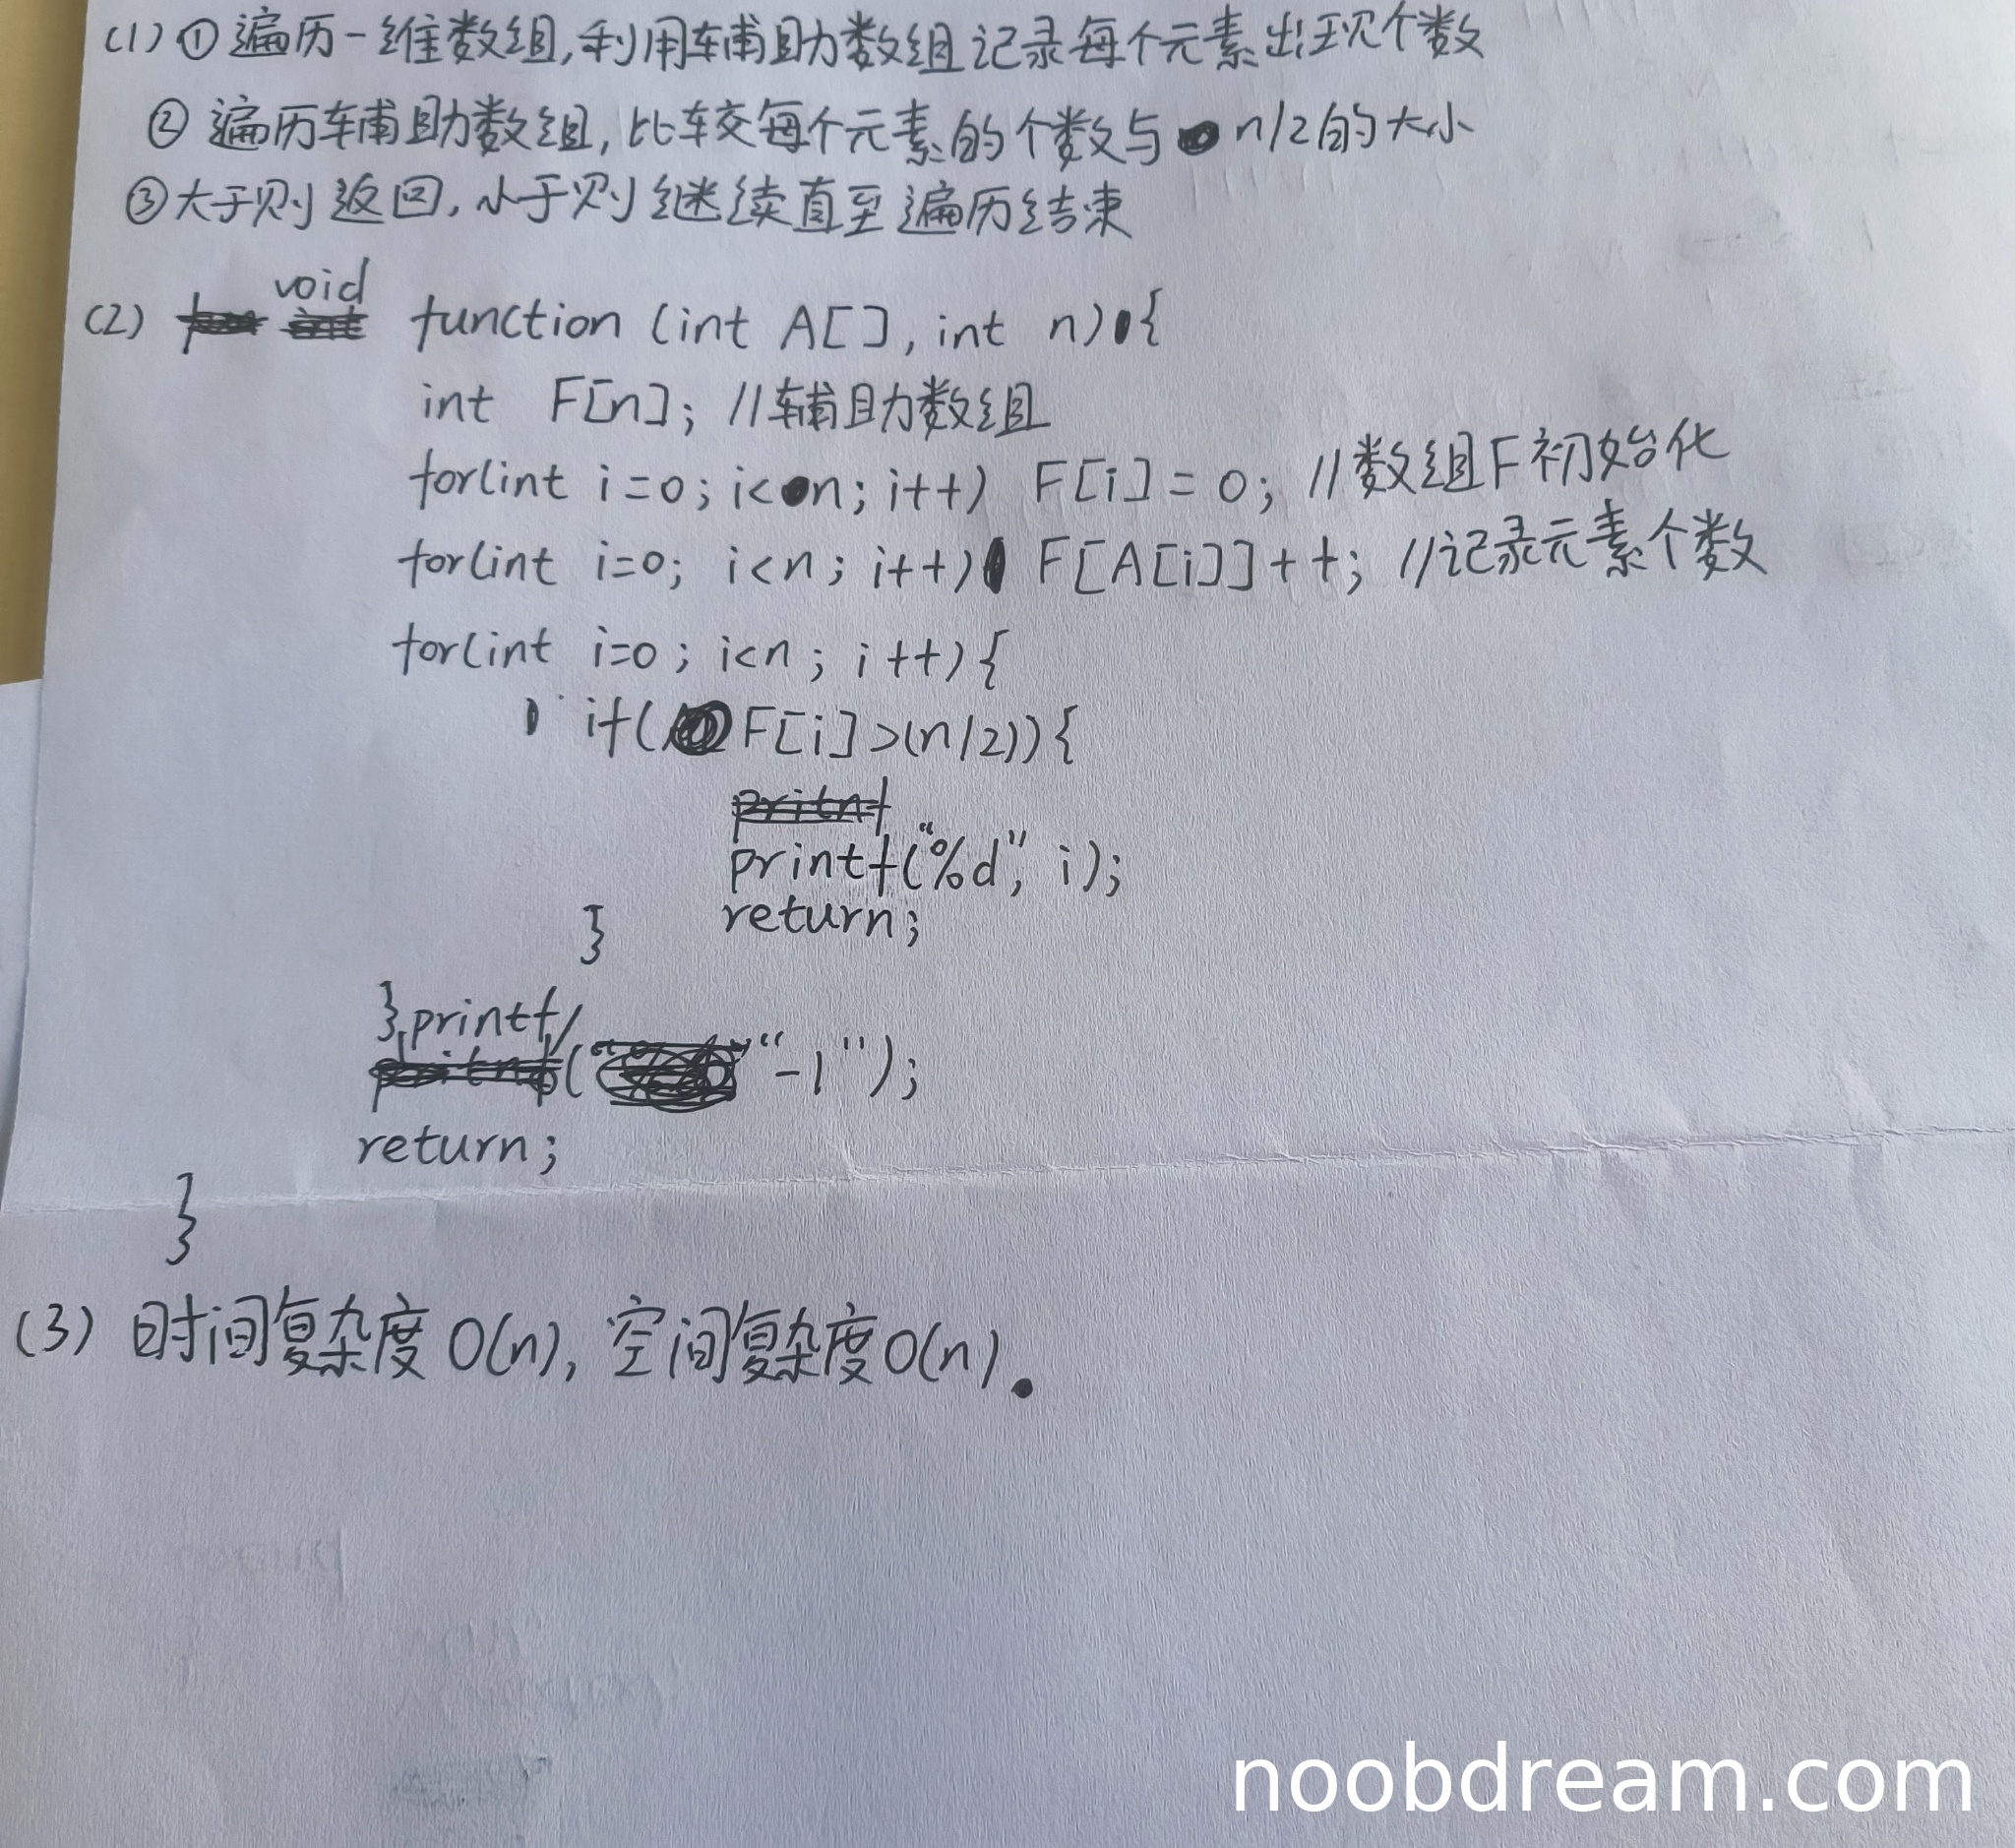 (1) ① 遍历一维数组,利用辅助数组记录每个元素出现个数
② 遍历辅助数组,比较每个元素的个数与 n/2的大小
③大于则返回,小于则继续直至遍历结束
(2) void function (int A[], int n) {
int F[n]; //辅助数组
for(int i=0; i<n; i++) F[i] = 0; //数组F初始化
for(int i=0; i<n; i++) F[A[i]]++; //记录元素个数
for(int i=0; i<n; i++){
if( F[i]>(n/2)){
pritnf
printf("%d", i);
return;
}
}printf
("-1");
return;
}
(3) 时间复杂度 O(n), 空间复杂度O(n).
noobdream.com